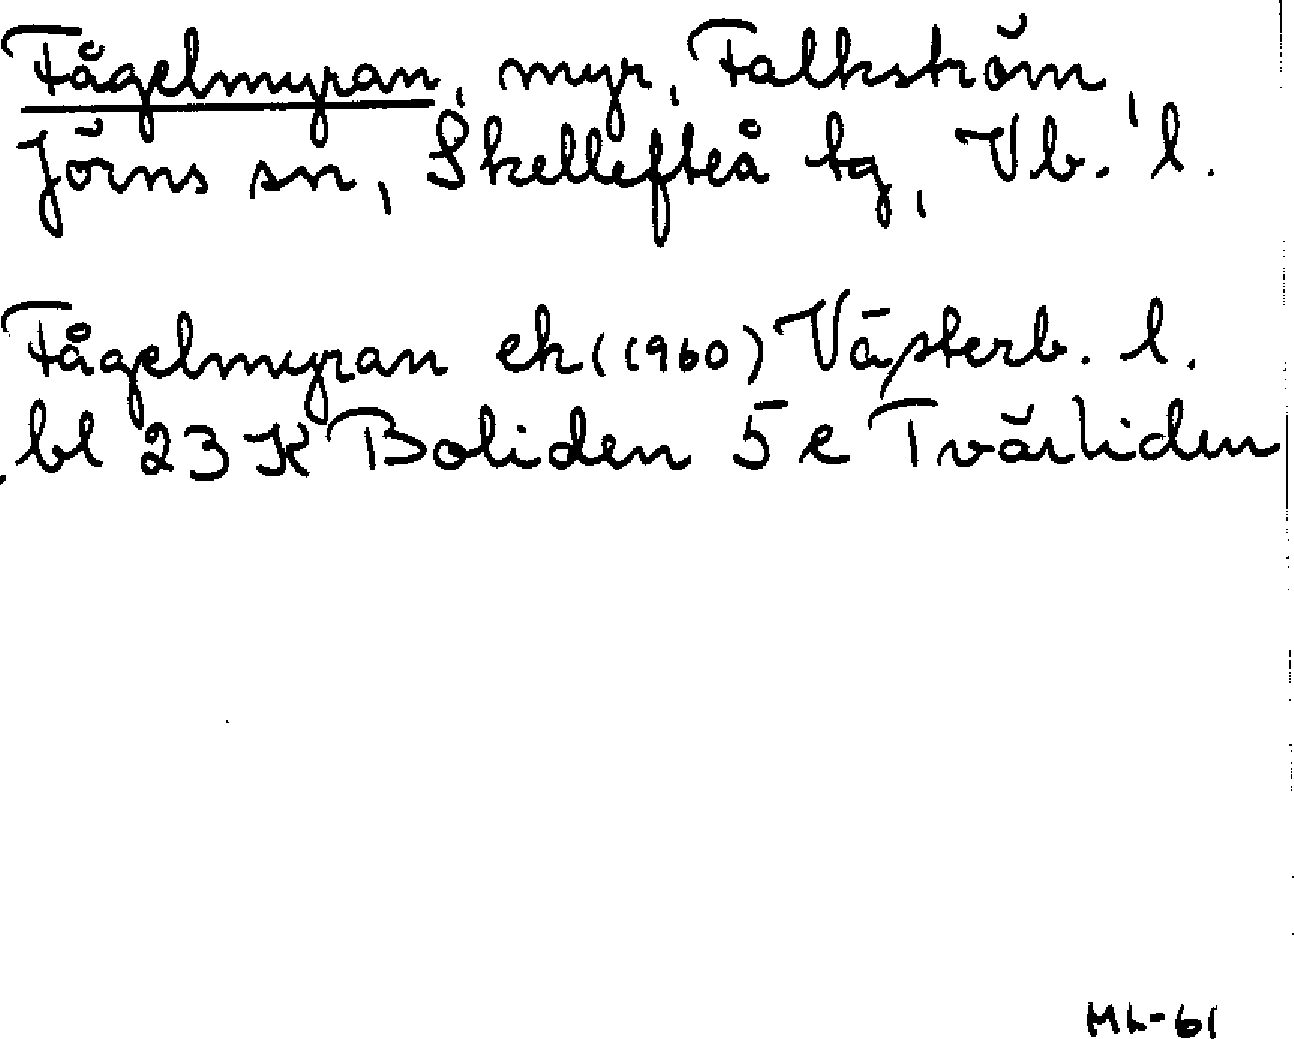 Fågelmyran, myr, Falkström,
Jörns sn, Skellefteå tg, Vb. l.
Fågelmyran ek (1960) Västerb. l.
bl 23 K Boliden 5 e Tvärliden
ML-61